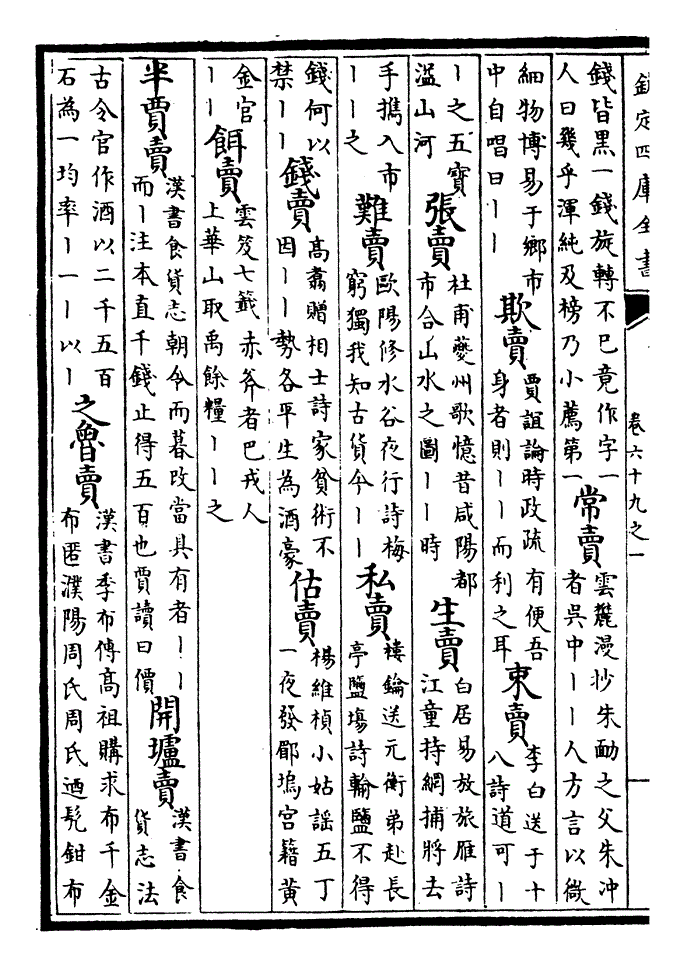 欽定四庫全書
卷六十九之一
錢皆黑一錢旋轉不已竟作字一
人曰幾乎渾純及榜乃小薦第一
常賣
雲麓漫抄朱勔之父朱冲
者吳中丨丨人方言以微
細物博易于鄉市
中自唱曰丨丨
欺賣
賈誼論時政疏有便吾
身者則丨丨而利之耳
束賣
李白送于十
八詩道可丨
丨之五寶
溢山河
張賣
杜甫夔州歌憶昔咸陽都
市合山水之圖丨丨時
生賣
白居易放旅雁詩
江童持網捕將去
手攜入市
丨丨之
難賣
歐陽修水谷夜行詩梅
窮獨我知古貨今丨丨
私賣
樓鑰送元衡弟赴長
亭鹽塲詩輸鹽不得
錢何以
禁丨丨
錢賣
高翥贈相士詩家貧術不
因丨丨勢各平生為酒豪
估賣
楊維楨小姑謡五丁
一夜發郿塢宫籍黄
金官
丨丨
餌賣
雲笈七籤赤斧者巴戎人
上華山取禹餘糧丨丨之
半賈賣
漢書食貨志朝令而暮改當具有者丨丨
而丨注本直千錢止得五百也賈讀曰價
開壚賣
漢書食
貨志法
古令官作酒以二千五百
石為一均率丨一丨以丨
之魯賣
漢書季布傳高祖購求布千金
布匿濮陽周氏周氏迺髠鉗布